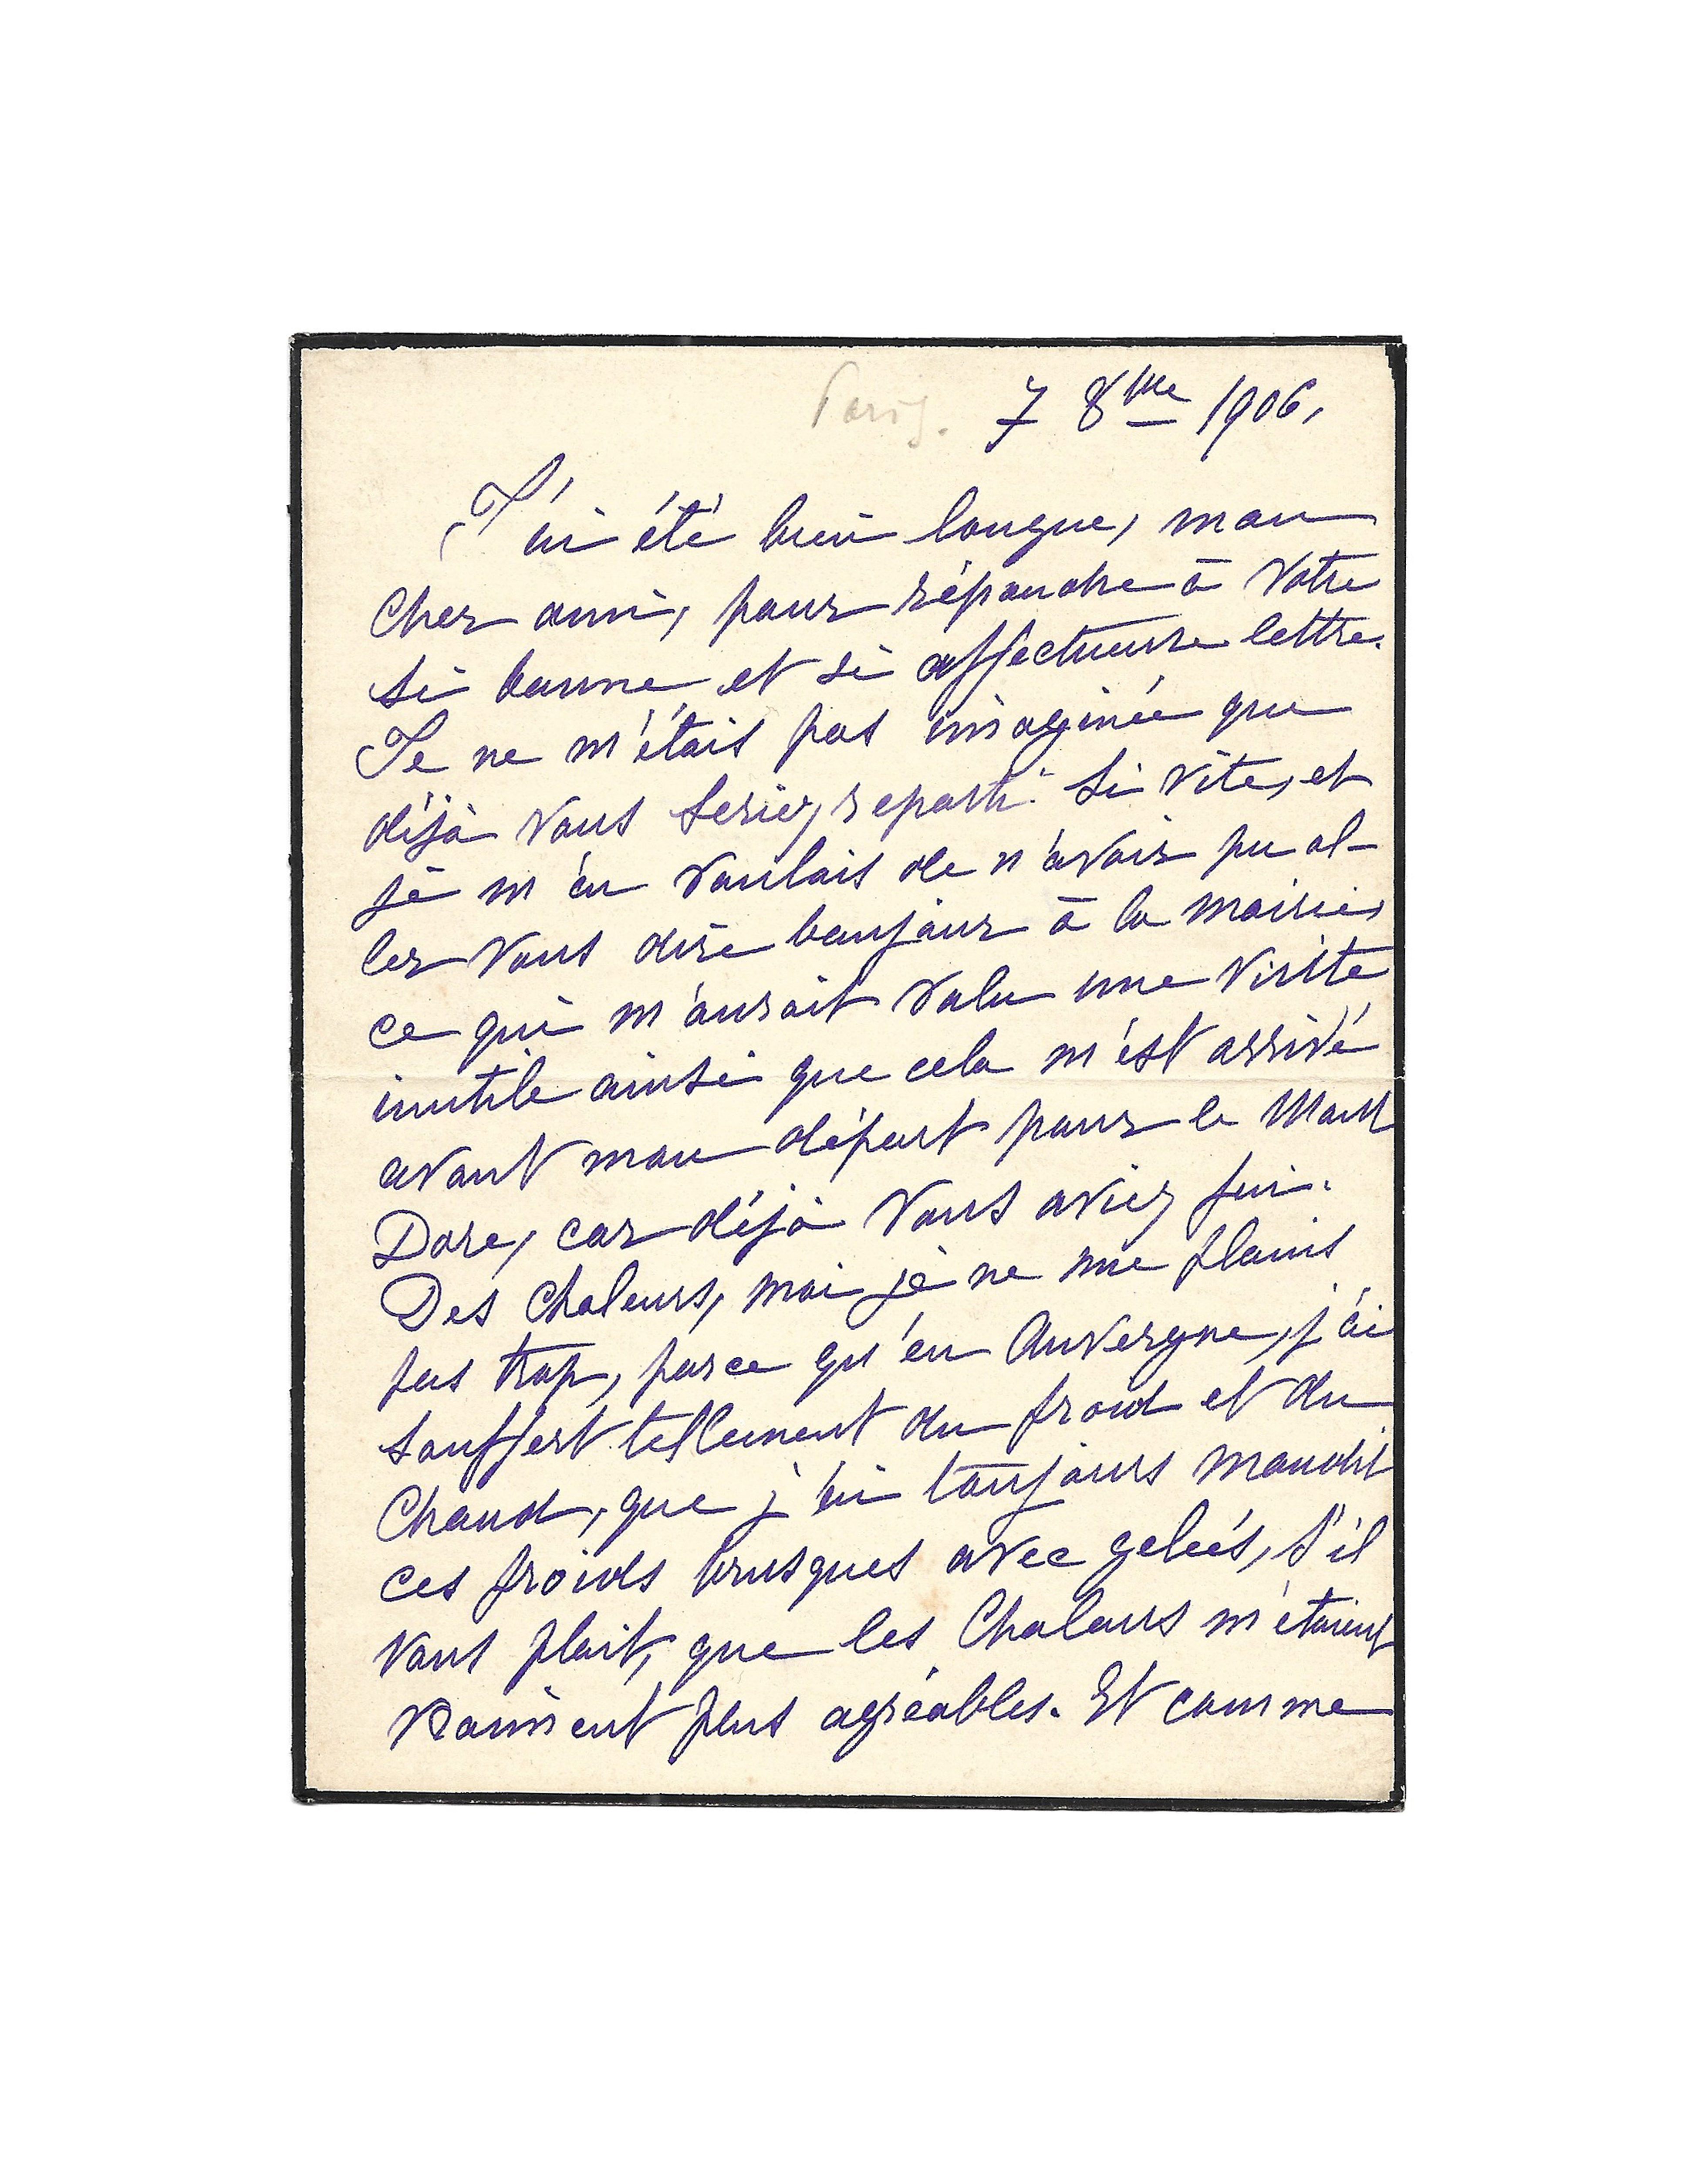 Paris. 7 8bre 1906,
J'ai été bien longue, mon
cher ami, pour répondre à votre
si bonne et si affectueuse lettre.
Je ne m'étais pas imaginée que
déjà vous seriez reparti si vite, et
je m'en voulais de n'avoir pu al-
ler vous dire bonjour à la mairie,
ce qui m'aurait valu une visite
inutile ainsi que cela m'est arrivé
avant mon départ pour le Mont
Dore, car déjà vous aviez fui.
Des chaleurs, moi je ne me plains
pas trop, parce qu'en Auvergne, j'ai
souffert tellement du froid et du
chaud, que j'ai toujours maudit
ces froids brusques avec gelées, s'il
vous plait, que les chaleurs m'étaient
vraiment plus agréables. Et comme